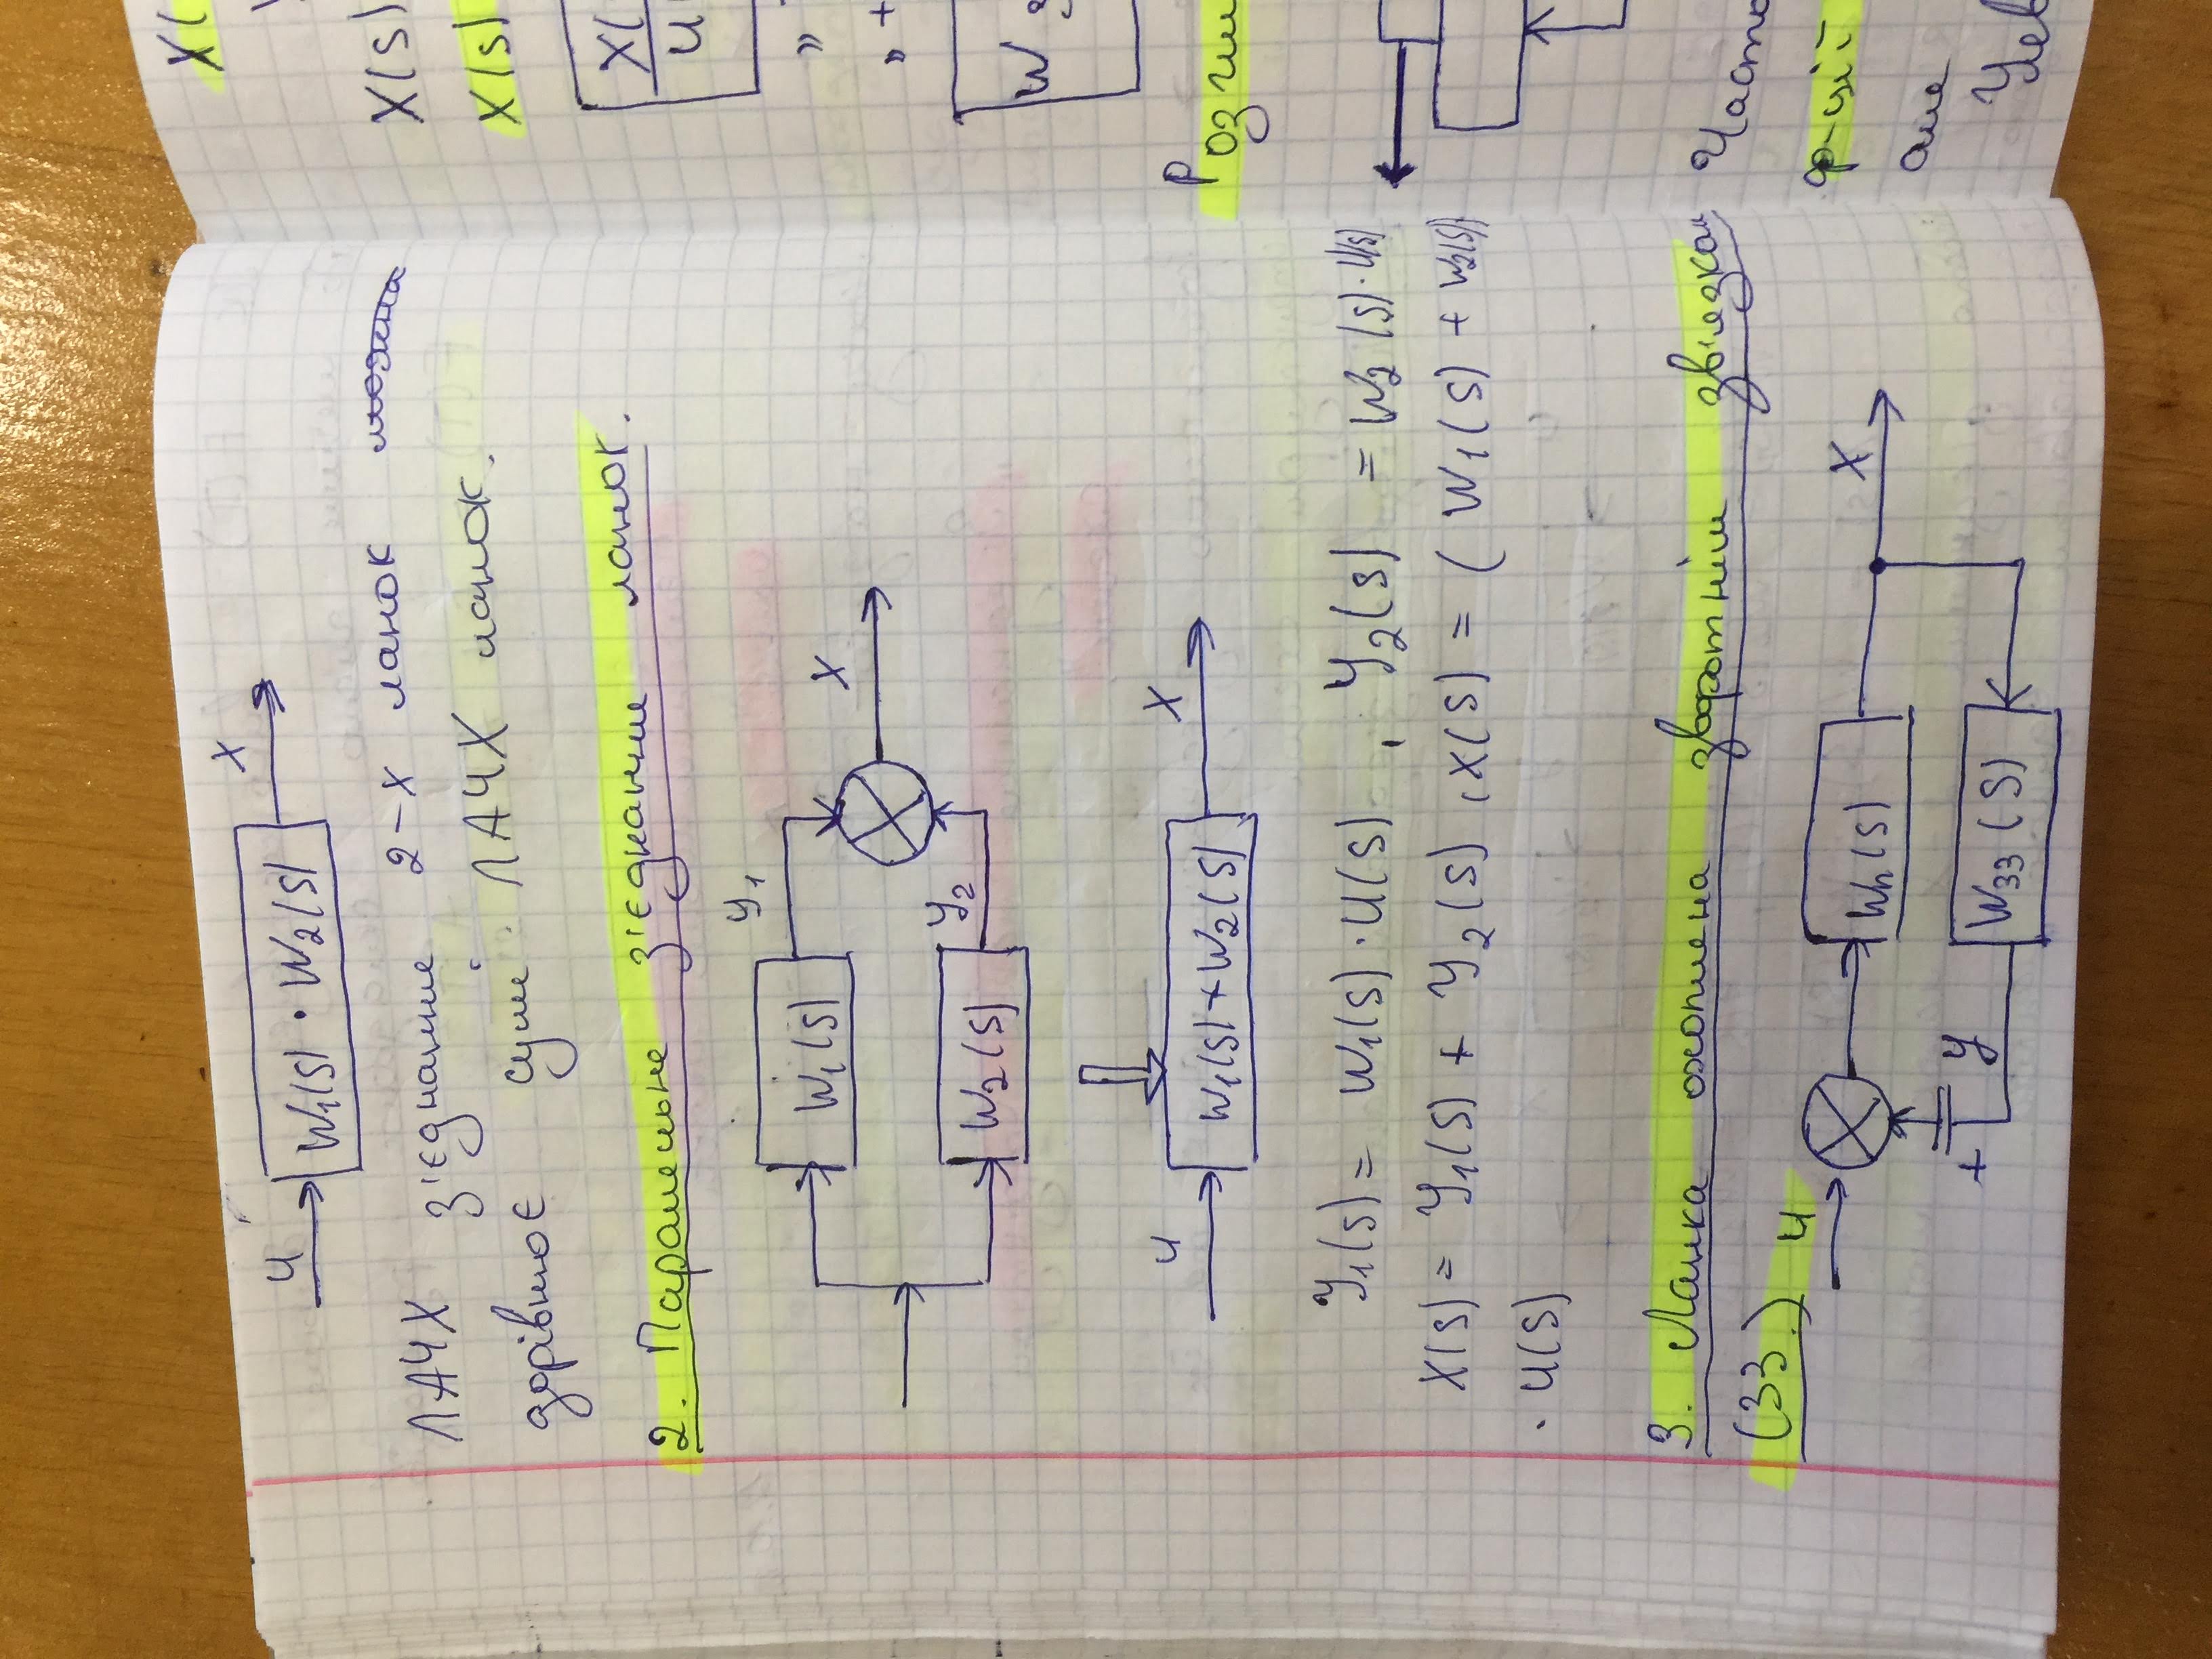 u
x
W1(s) · W2(s)
ЛАЧХ з'єднання 2-х ланок можна
дорівнює сумі ЛАЧХ ланок.
2. Паралельне з'єднання ланок.
W1(s)
y1
x
W2(s)
y2
u
x
W1(s)+W2(s)
Y1(s) = W1(s)·U(s), Y2(s) = W2(s)·U(s)
X(s) = Y1(s) + Y2(s), X(s) = (W1(s) + W2(s))
· U(s)
3. Ланка охоплена зворотнім зв'язком
(ЗЗ.)
u
Wn(s)
x
+
y
Wзз(s)
X(
X(s)
X(s)
X(
U
» +
W з
Част
ф-цїї
але